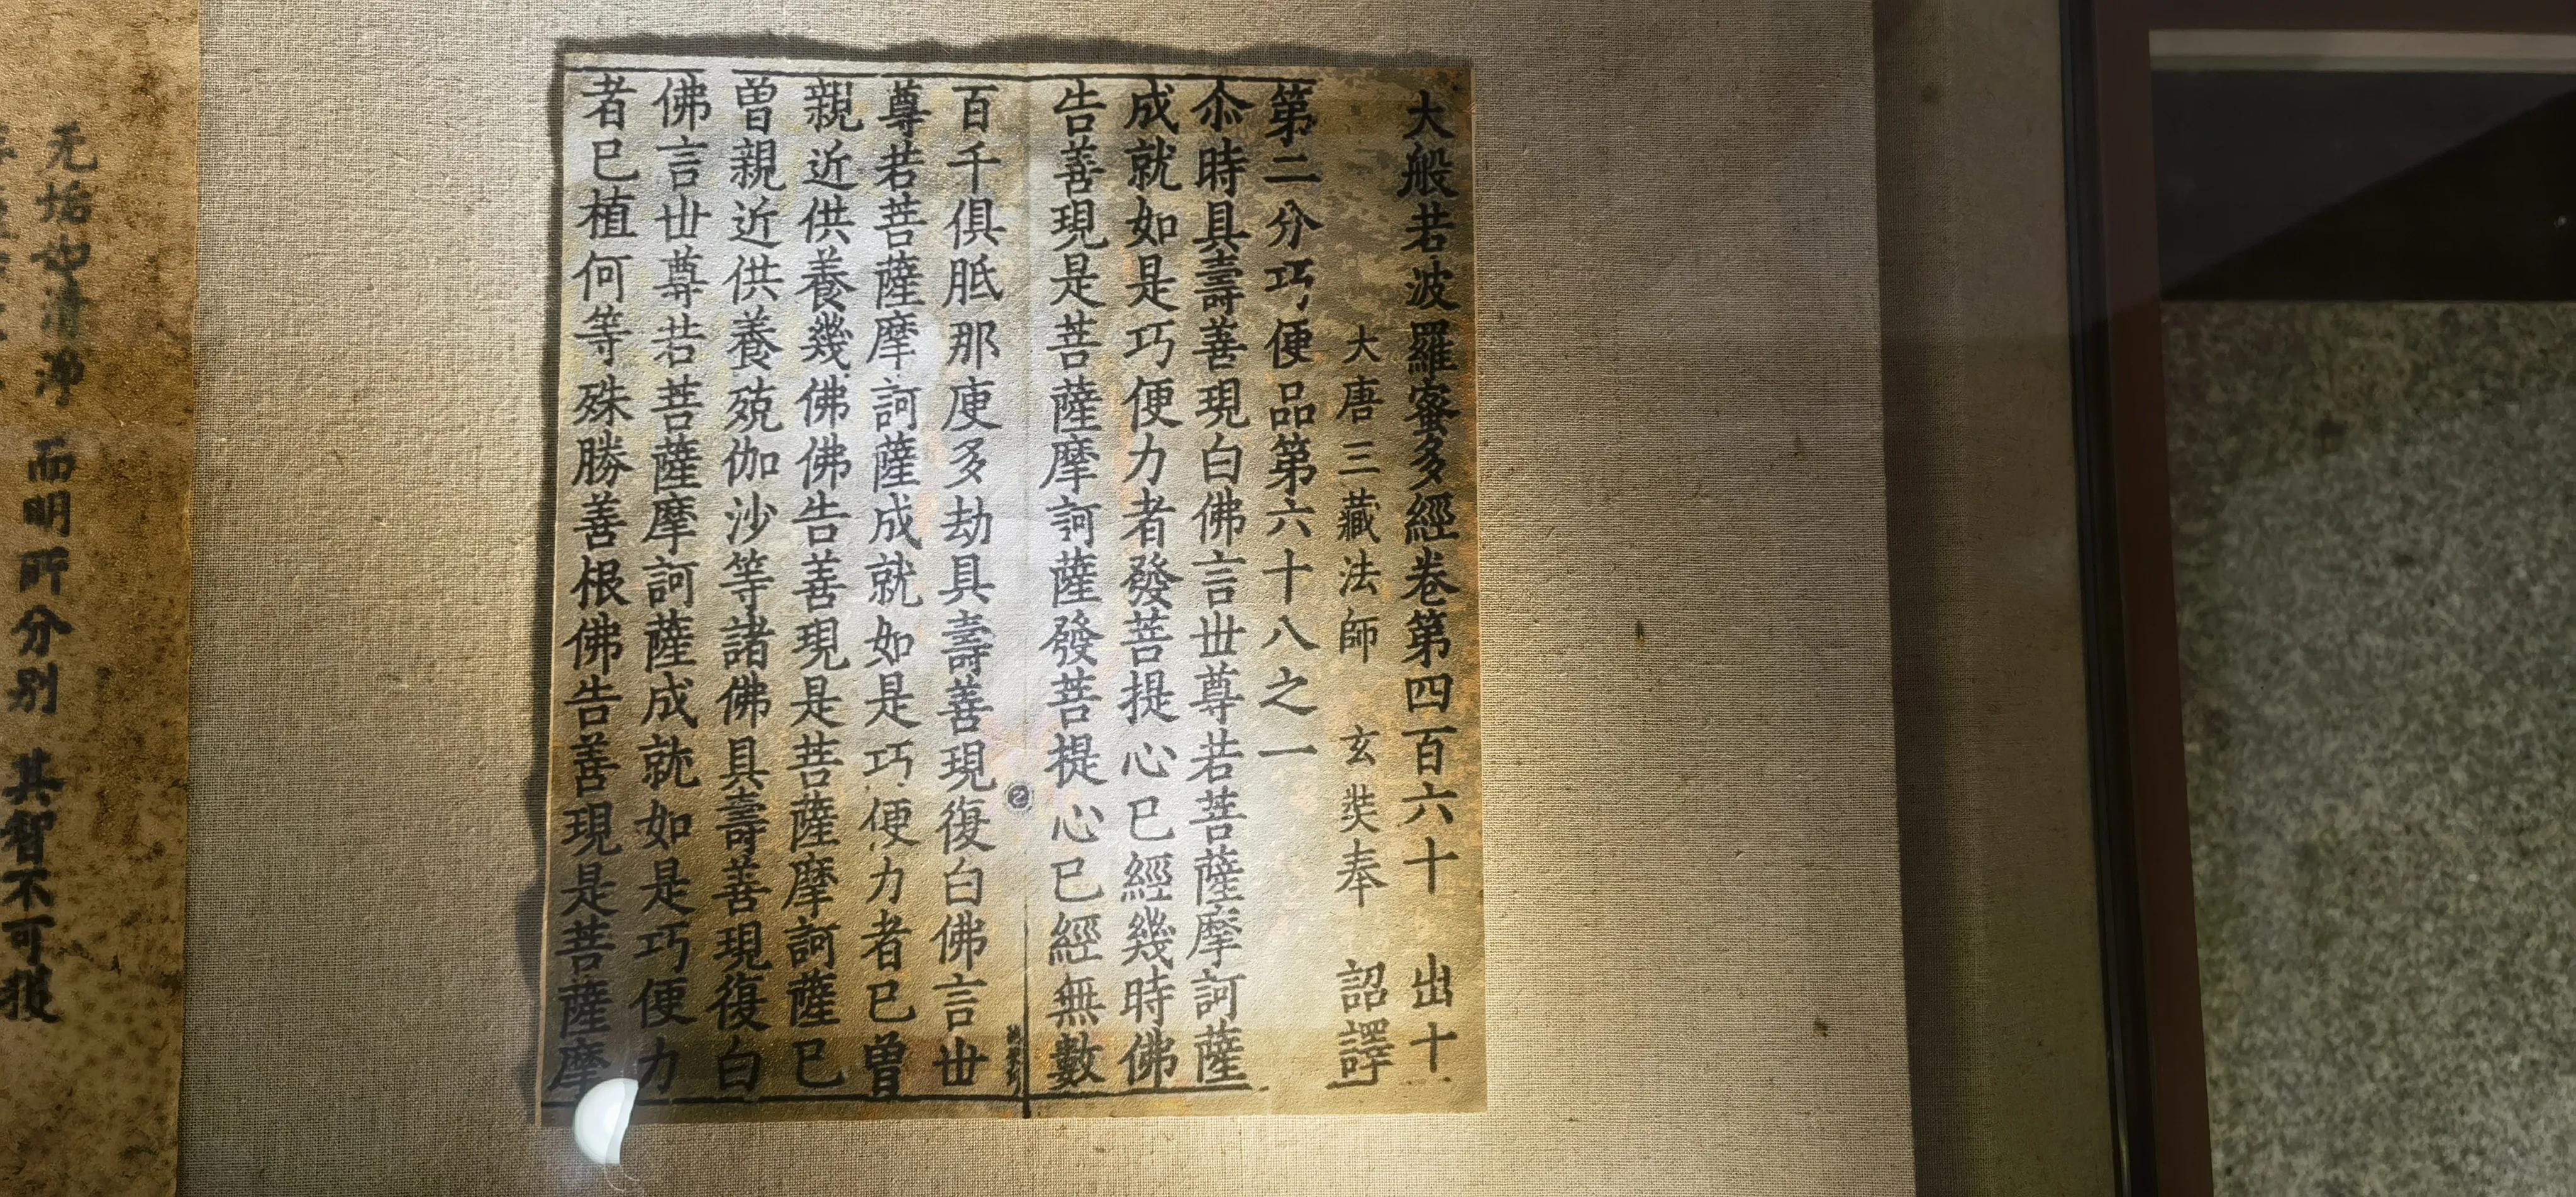 大般若波羅蜜多經卷第四百六十 出十
大唐三藏法師 玄奘奉 詔譯
第二分巧便品第六十八之一
尒時具壽善現白佛言世尊若菩薩摩訶薩
成就如是巧便力者發菩提心已經幾時佛
告善現是菩薩摩訶薩發菩提心已經無數
百千俱胝那庾多劫具壽善現復白佛言世
尊若菩薩摩訶薩成就如是巧便力者已曾
親近供養幾佛佛告善現是菩薩摩訶薩已
曾親近供養殑伽沙等諸佛具壽善現復白
佛言世尊若菩薩摩訶薩成就如是巧便力
者已植何等殊勝善根佛告善現是菩薩摩
无垢也清淨 而明所分别 其智不可